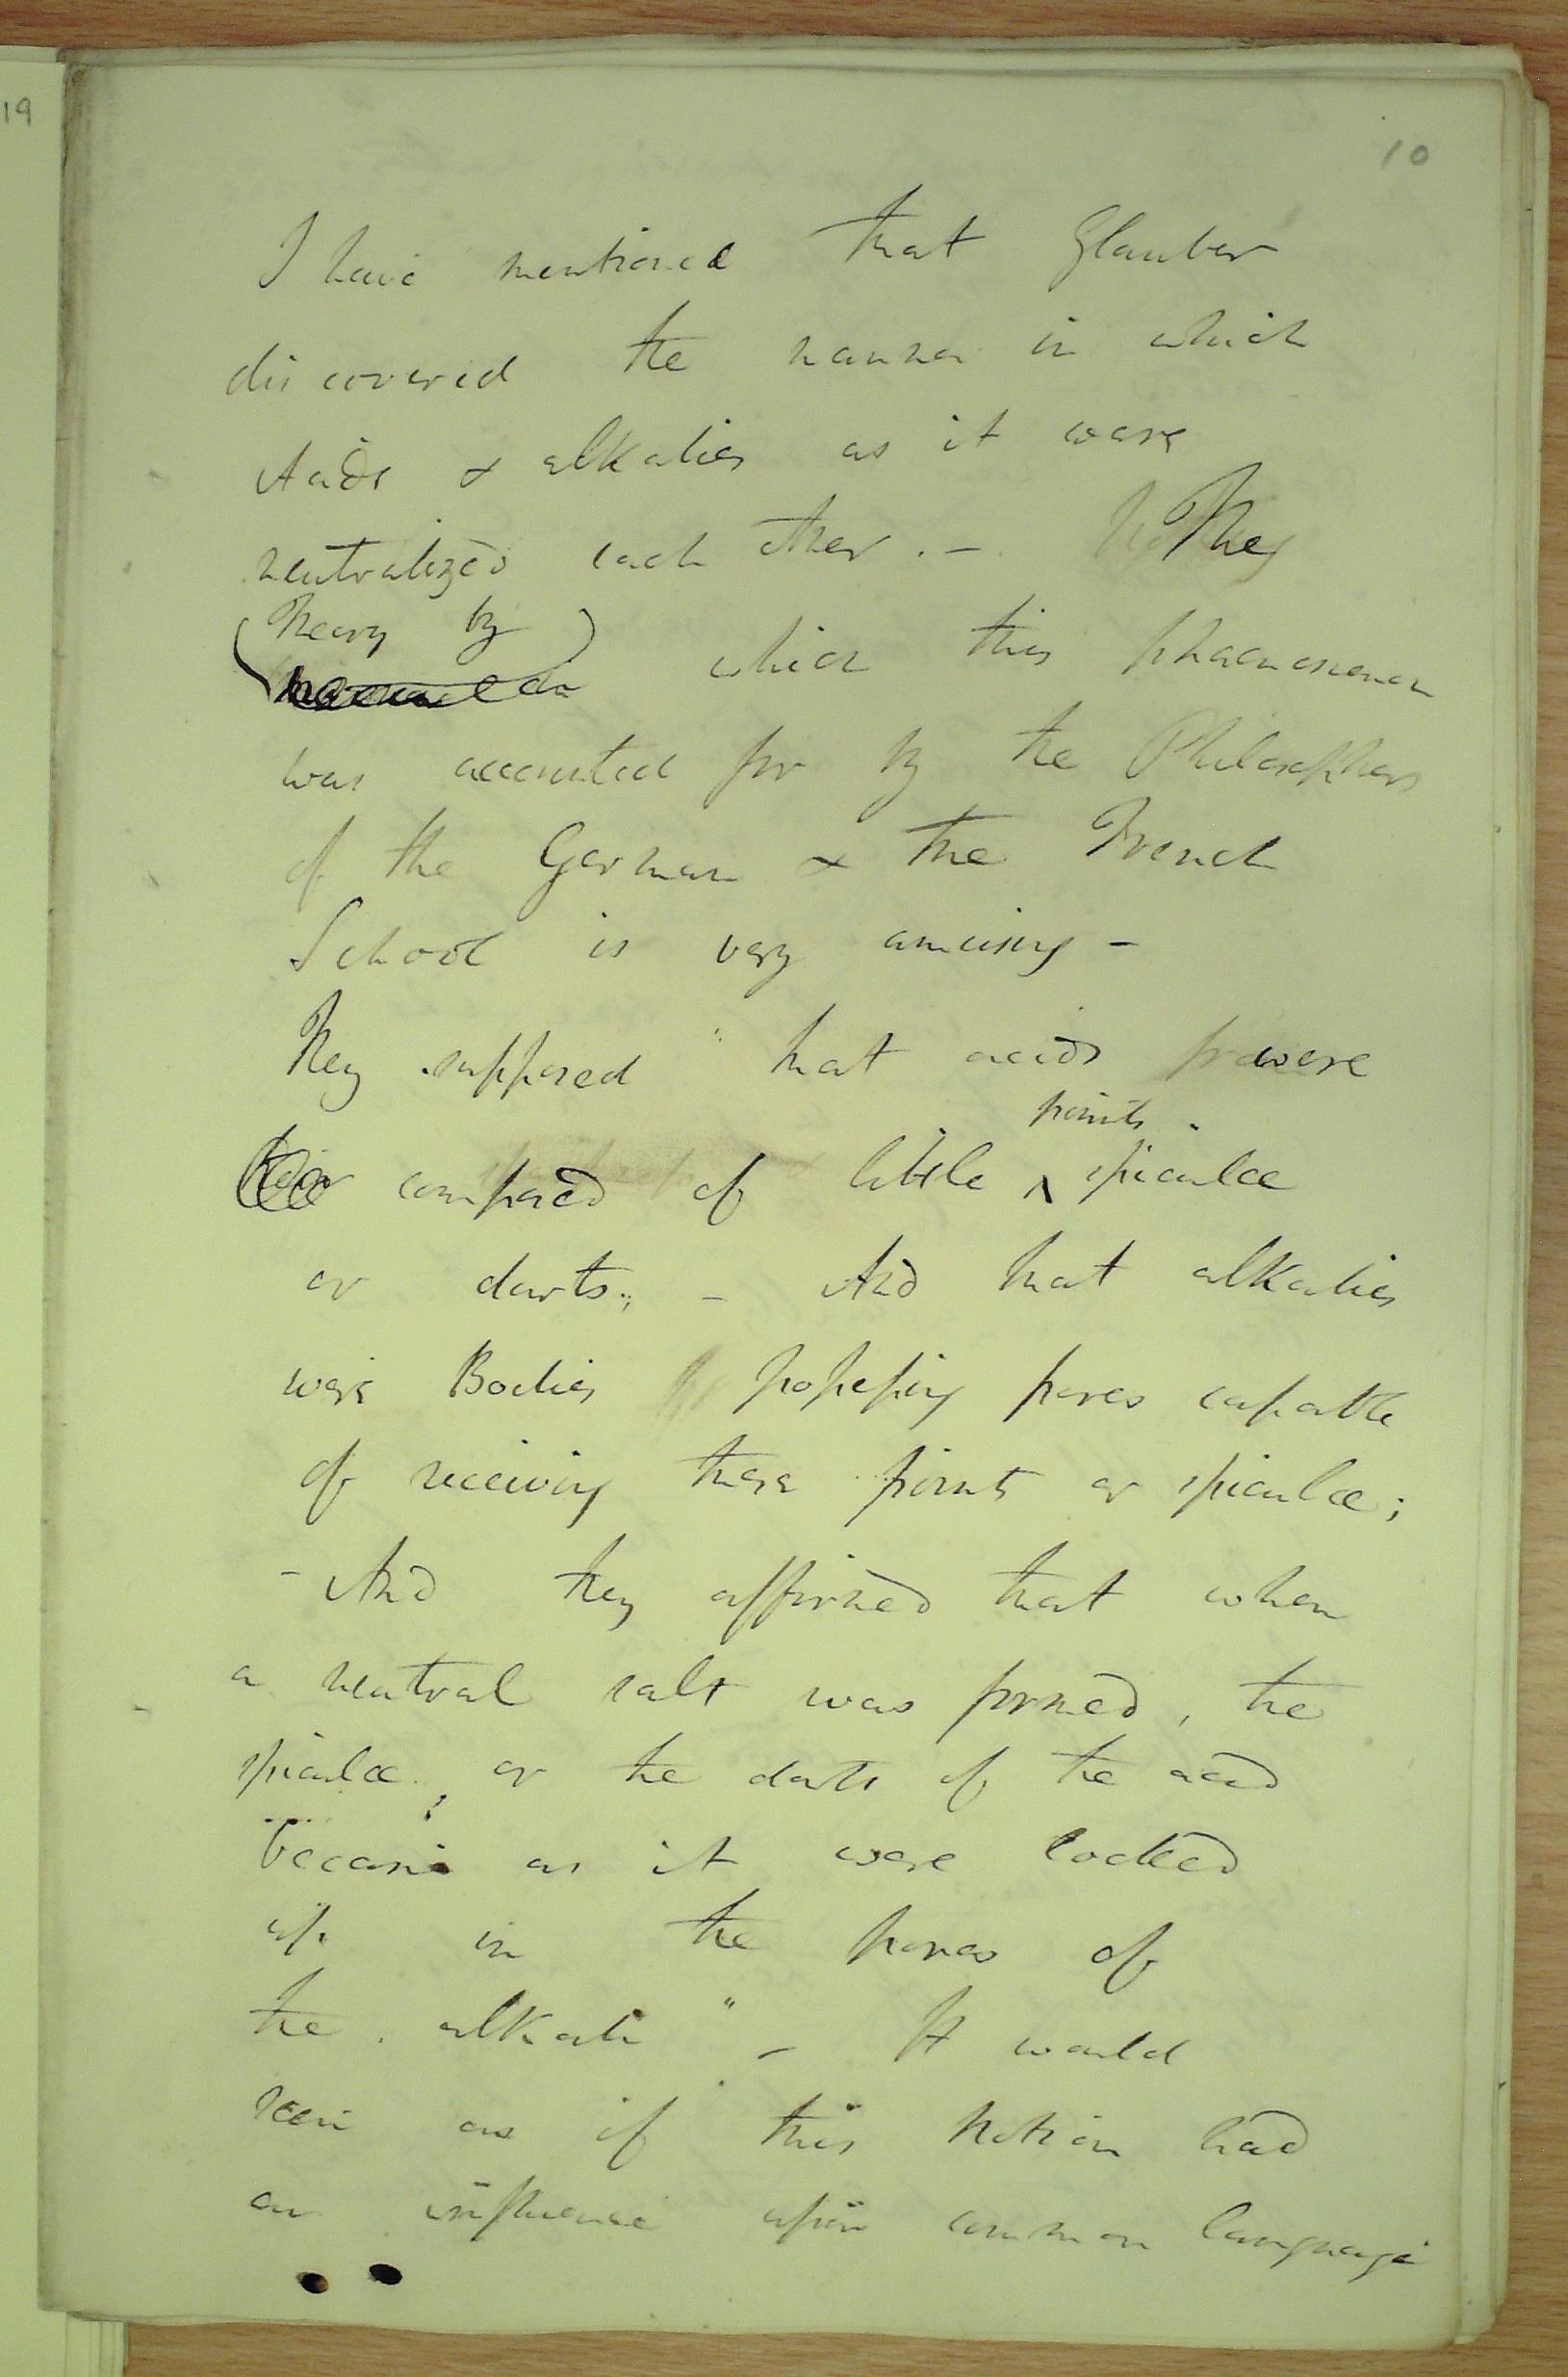 19
10
I have mentioned that Glauber
discovered the manner in which
Acids & alkalies as it were
neutralized each other. — The
(Theory by)
which this phaenomenon
was accounted for by the Philosophers
of the German & the French
School is very amusing —
They supposed "that acids were
points
composed of little ^ spiculæ
or darts; — And that alkalies
were Bodies possessing pores capable
of receiving these points or spiculæ;
— And they affirmed that when
a neutral salt was formed, the
spiculæ, or the darts of the acid
became as it were locked
up in the pores of
the alkali" — It would
seem as if this Notion had
an influence upon common language